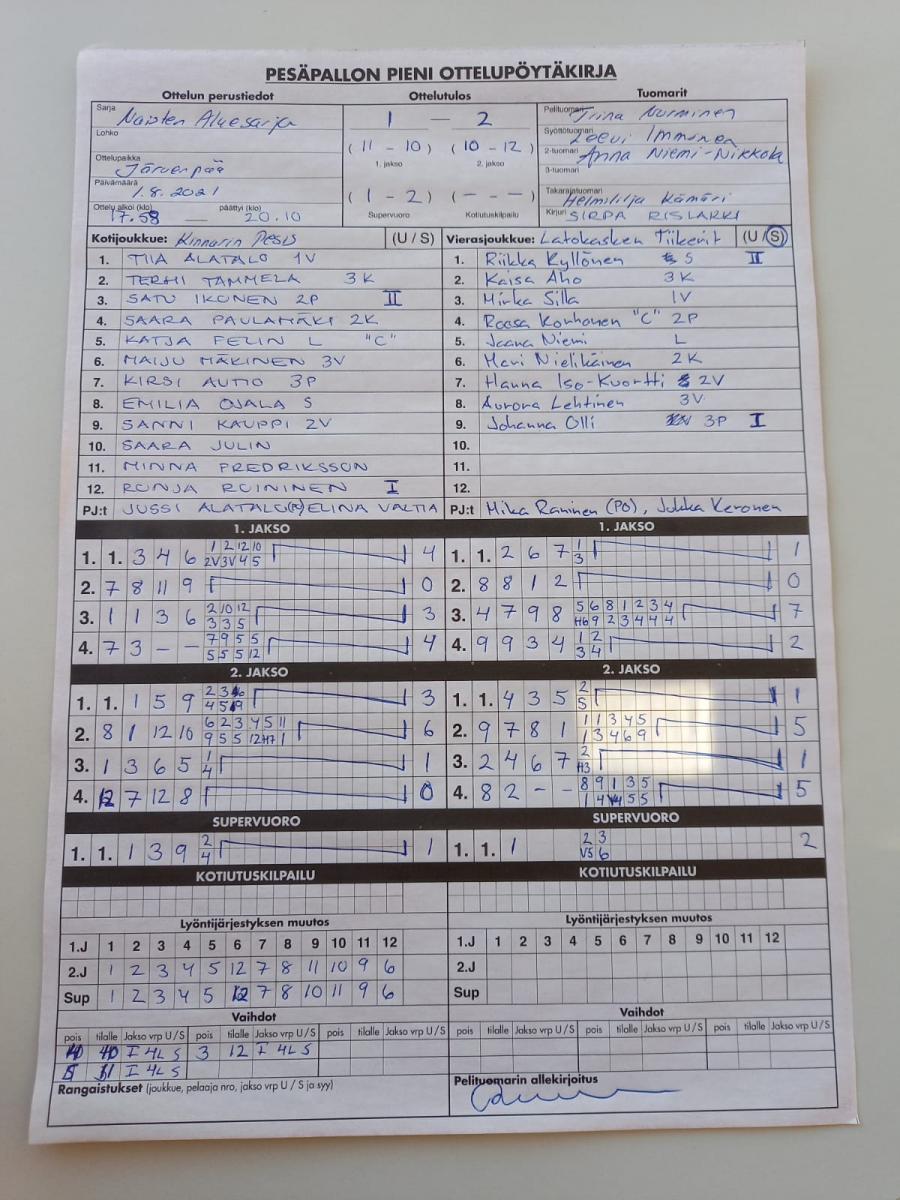 PESÄPALLON PIENI OTTELUPÖYTÄKIRJA
Ottelun perustiedot Ottelutulos Tuomarit
Sarja Naisten Aluesarja
Lohko
Ottelupaikka Järvenpää
Päivämäärä 1.8.2021
Ottelu alkoi (klo) 17.58 — päättyi (klo) 20.10
1 — 2
(11 - 10) (10 - 12)
1. jakso 2. jakso
(1 - 2) (- - -)
Supervuoro Kotiutuskilpailu
Pelituomari Triina Nurminen
Syöttötuomari Leevi Immonen
2-tuomari Anna Niemi-Nikkola
3-tuomari
Takarajatuomari Helmililja Kämäri
Kirjuri SIRPA RISLAKKI
Kotijoukkue: Kinnarin Pesis (U / S)
1. TIIA ALATALO 1V
2. TERHI TAMMELA 3K
3. SATU IKONEN 2P II
4. SAARA PAULAMÄKI 2K
5. KATJA FELIN L "C"
6. MAIJU MÄKINEN 3V
7. KIRSI AUTIO 3P
8. EMILIA OJALA S
9. SANNI KAUPPI 2V
10. SAARA JULIN
11. MINNA FREDRIKSSON
12. RONJA ROININEN I
PJ:t JUSSI ALATALO ELINA VALTIA
Vierasjoukkue: Latokasken Tiikerit (U / S)
1. Riikka Kyllönen S II
2. Kaisa Aho 3K
3. Mirka Silla 1V
4. Roosa Korhonen "C" 2P
5. Jaana Niemi L
6. Meri Nielikäinen 2K
7. Hanna Iso-Kuortti 2V
8. Aurora Lehtinen 3V
9. Johanna Olli 3P I
10.
11.
12.
PJ:t Mika Raninen (PO), Jukka Keronen
1. JAKSO
1. 1. 3 4 6 1 2 12 10 4
2V 3V 4 5
2. 7 8 11 9 0
3. 1 1 3 6 2 10 12 3
3 3 5
4. 7 3 – – 7 9 5 5 4
5 5 5 12
1. JAKSO
1. 1. 2 6 7 1 1
3
2. 8 8 1 2 0
3. 4 7 9 8 5 6 8 1 2 3 4 7
H6 9 2 3 4 4 4
4. 9 9 3 4 1 2 2
3 4
2. JAKSO
1. 1. 1 5 9 2 3 3
4 5 9
2. 8 1 12 10 6 2 3 4 5 11 6
9 5 5 12 H7 1
3. 1 3 6 5 1 1
4
4. 12 7 12 8 0
2. JAKSO
1. 1. 4 3 5 2 1
5
2. 9 7 8 1 1 1 3 4 5 5
1 3 4 6 9
3. 2 4 6 7 2 1
H3
4. 8 2 – – 8 9 1 3 5 5
1 4 4 5 5
SUPERVUORO
1. 1. 1 3 9 2 1
4
SUPERVUORO
1. 1. 1 2 3 2
V5 6
KOTIUTUSKILPAILU
KOTIUTUSKILPAILU
Lyöntijärjestyksen muutos
1.J 1 2 3 4 5 6 7 8 9 10 11 12
2.J 1 2 3 4 5 12 7 8 11 10 9 6
Sup 1 2 3 4 5 12 7 8 10 11 9 6
Lyöntijärjestyksen muutos
1.J 1 2 3 4 5 6 7 8 9 10 11 12
2.J
Sup
Vaihdot
pois tilalle Jakso vrp U / S pois tilalle Jakso vrp U / S pois tilalle
I 4L S 3 12 I 4L S
I 4L S
Vaihdot
pois tilalle Jakso vrp U / S pois tilalle Jakso vrp U / S pois tilalle
Rangaistukset (joukkue, pelaaja nro, jakso vrp U / S ja syy)
Pelituomarin allekirjoitus